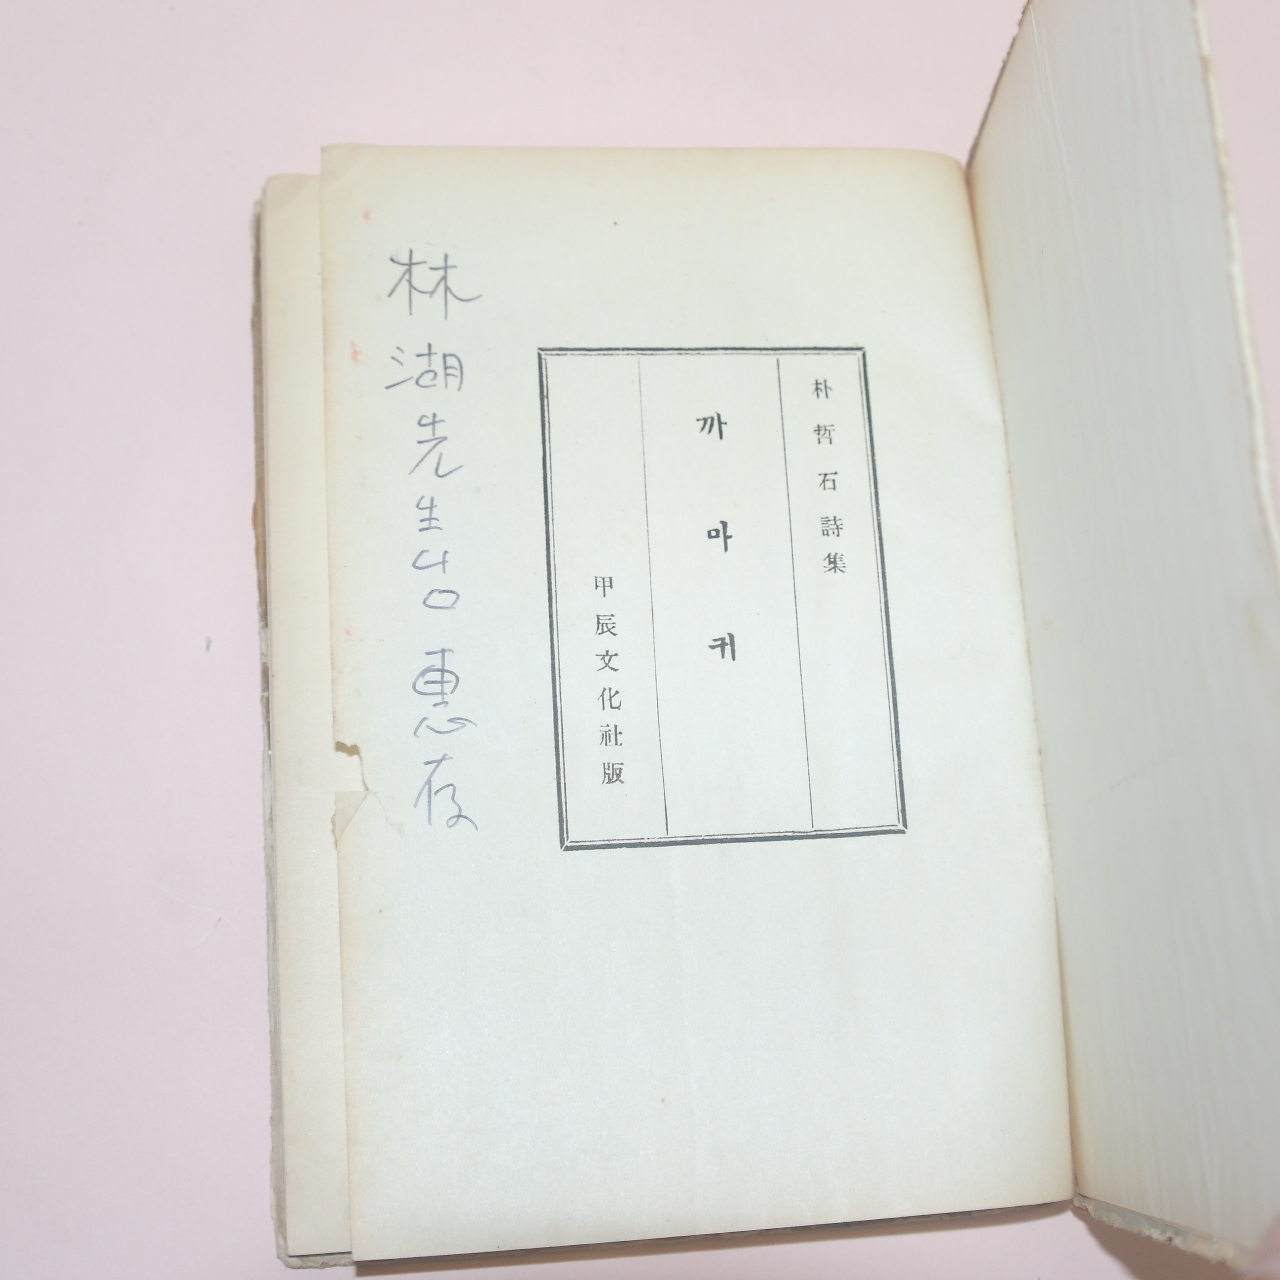 朴哲石詩集
까마귀
甲辰文化社版
林湖先生님 惠存